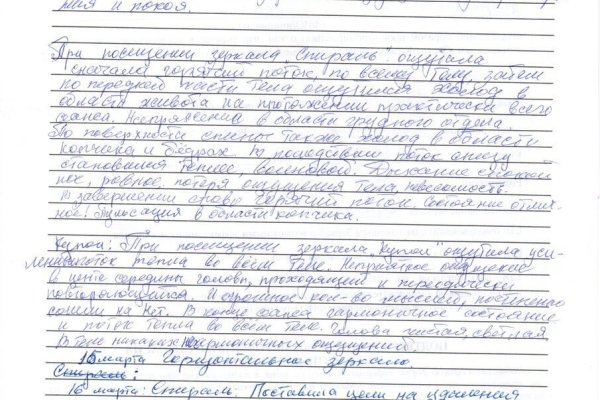 ния и покоя.
При посещении зеркала "Спираль" ощутила
сначала горячий поток, по всему телу, затем
по передней части тела ощущался холод в
области живота на протяжении практически всего
сеанса. Напряжение в области грудного отдела.
По поверхности спины также холод в области
копчика и бёдрах. В последствии поток снизу
становился теплее, волновой. Дыхание спокой
ное, ровное, потеря ощущения тела, невесомость.
В завершении снова горячий поток. Состояние отлич-
ное. Пульсация в области копчика.
Купол: При посещении зеркала "Купол" ощутила уси-
ление поток тепла во всём теле. Неприятное ощущение
в центре середины головы, проходящий и периодически
повторяющийся. И огромное кол-во мыслей, постепенно
сошли на нет. В конце сеанса гармоничное состояние
и поток тепла во всём теле. Голова чистая, светлая,
в теле никаких негармоничных ощущений.
15 марта Горизонтальное зеркало.
Спираль:
16 марта: Спираль. Поставила цели на удаления